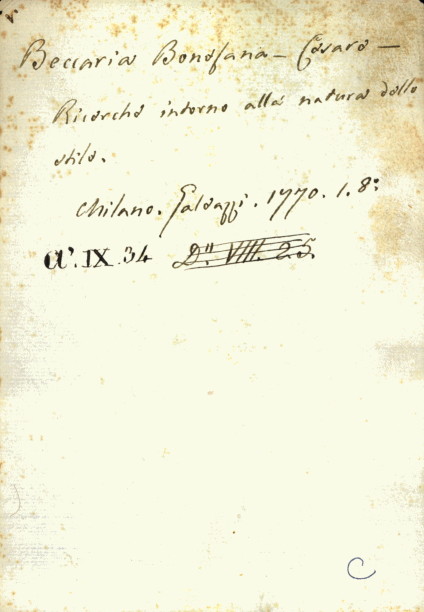 Beccaria Bonesana - Cesare -
Ricerche intorno alla natura dello
stile.
Milano. Galeazzi. 1770. 1. 8:
A'. IX. 34 D". VIII. 25.
C